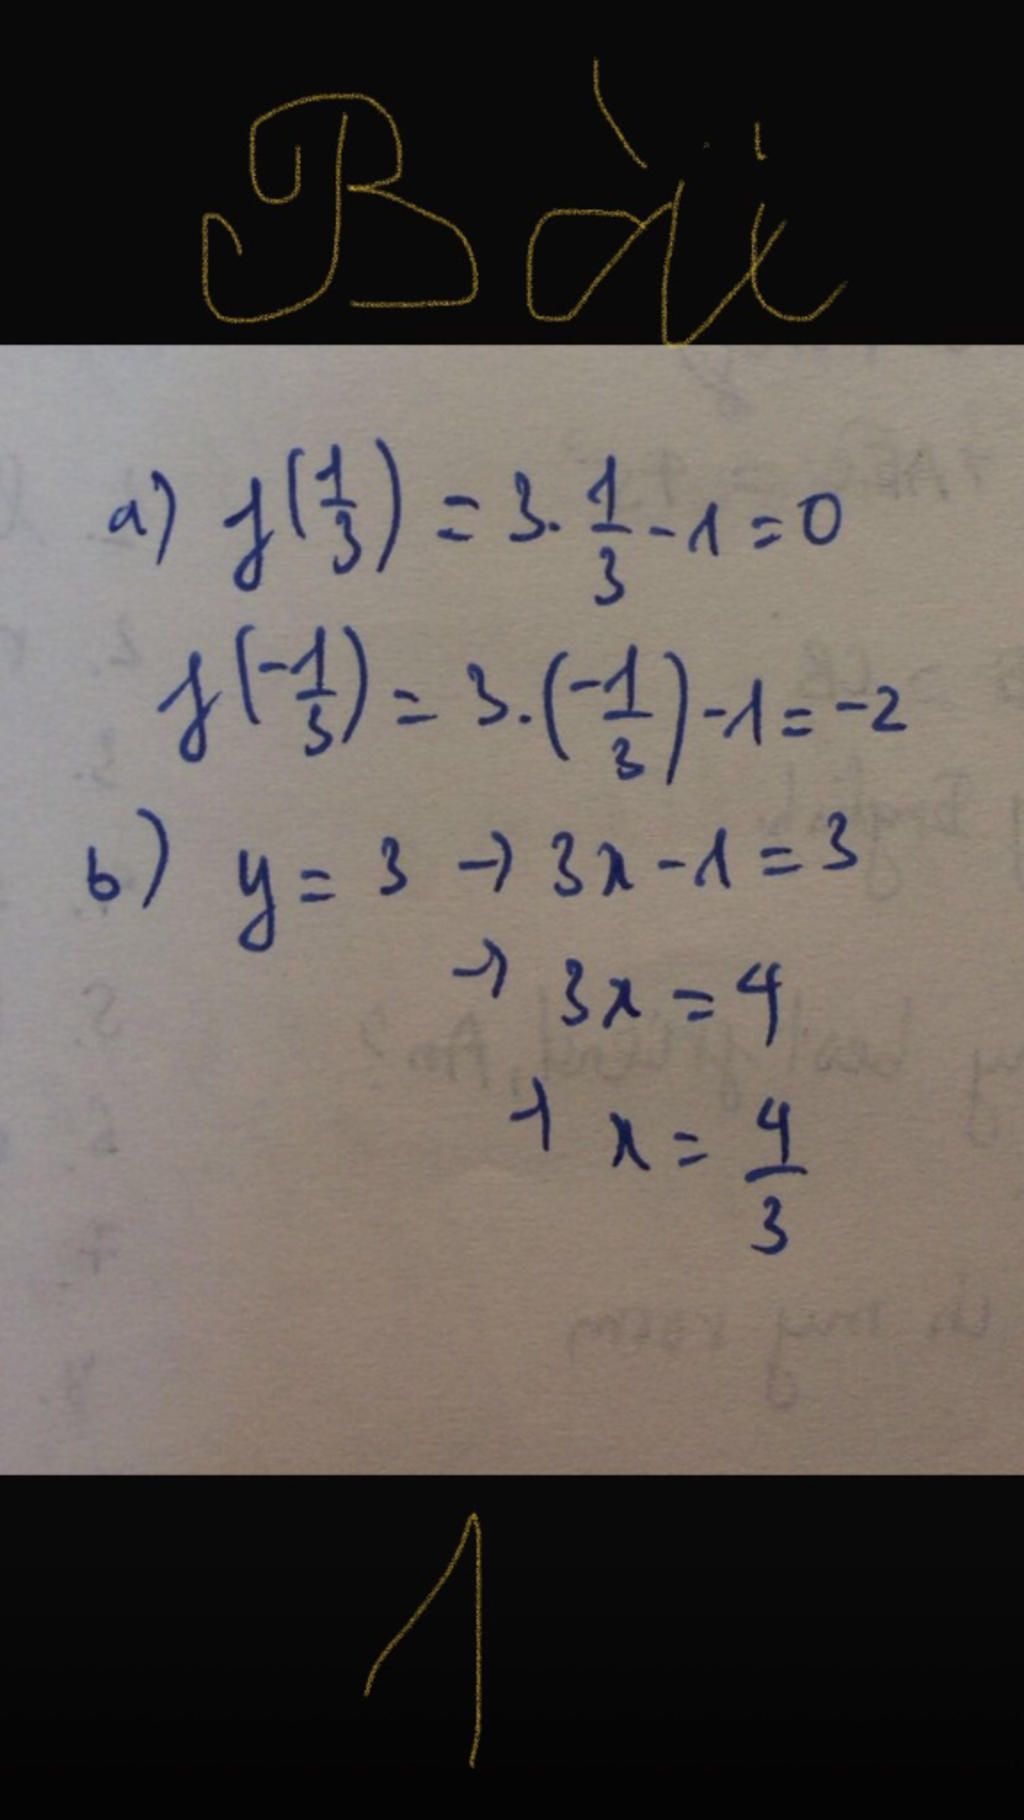 Bài
a) f(1/3) = 3. 1/3 - 1 = 0
f(-1/3) = 3. (-1/3) - 1 = -2
b) y = 3 → 3x - 1 = 3
→ 3x = 4
→ x = 4/3
1